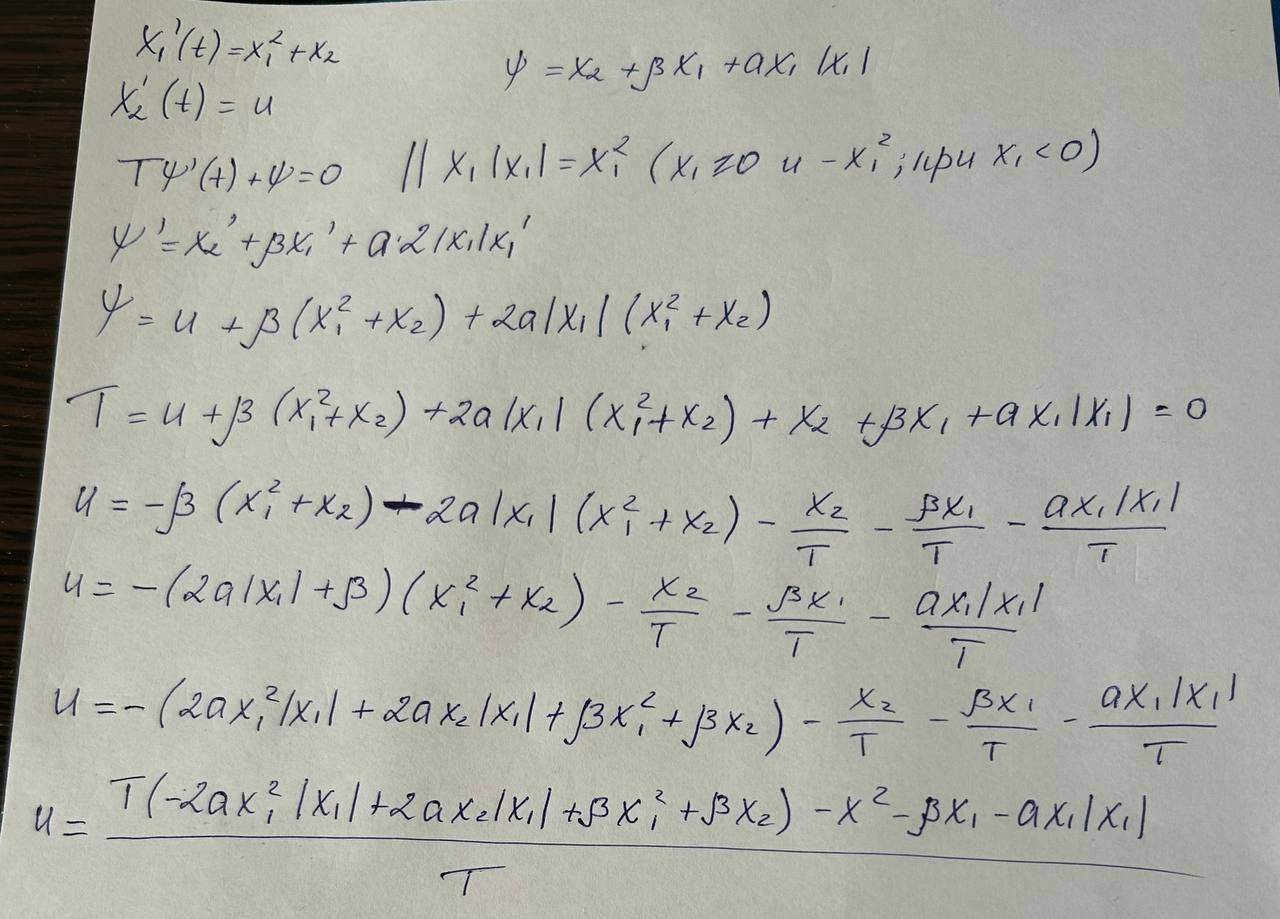 x₁'(t) = x₁² + x₂
ψ = x₂ + βx₁ + ax₁|x₁|
x₂'(t) = u
Tψ'(t) + ψ = 0 || x₁|x₁| = x₁² (x₁ ≥ 0 и -x₁²; при x₁ < 0)
ψ' = x₂' + βx₁' + a·2|x₁|x₁'
ψ = u + β(x₁² + x₂) + 2a|x₁|(x₁² + x₂)
T = u + β(x₁² + x₂) + 2a|x₁|(x₁² + x₂) + x₂ + βx₁ + ax₁|x₁| = 0
u = -β(x₁² + x₂) - 2a|x₁|(x₁² + x₂) - x₂/T - βx₁/T - ax₁|x₁|/T
u = -(2a|x₁| + β)(x₁² + x₂) - x₂/T - βx₁/T - ax₁|x₁|/T
u = -(2ax₁²|x₁| + 2ax₂|x₁| + βx₁² + βx₂) - x₂/T - βx₁/T - ax₁|x₁|/T
u = (T(-2ax₁²|x₁| + 2ax₂|x₁| + βx₁² + βx₂) - x² - βx₁ - ax₁|x₁|)/T